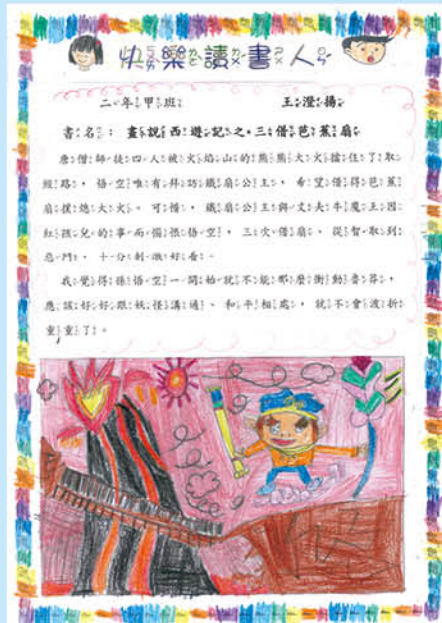 快樂讀書人
二年甲班 王澄揚
書名：畫說西遊記之三借芭蕉扇
唐僧師徒四人被火焰山的熊熊大火擋住了取
經路，悟空唯有拜訪鐵扇公主，希望借得芭蕉
扇撲熄大火。可惜，鐵扇公主與丈夫牛魔王因
紅孩兒的事而惱恨悟空，三次借扇、從智取到
惡鬥，十分刺激好看。
我覺得孫悟空一開始就不能那麼衝動魯莽，
應該好好跟妖怪溝通、和平相處，就不會波折
重重了。